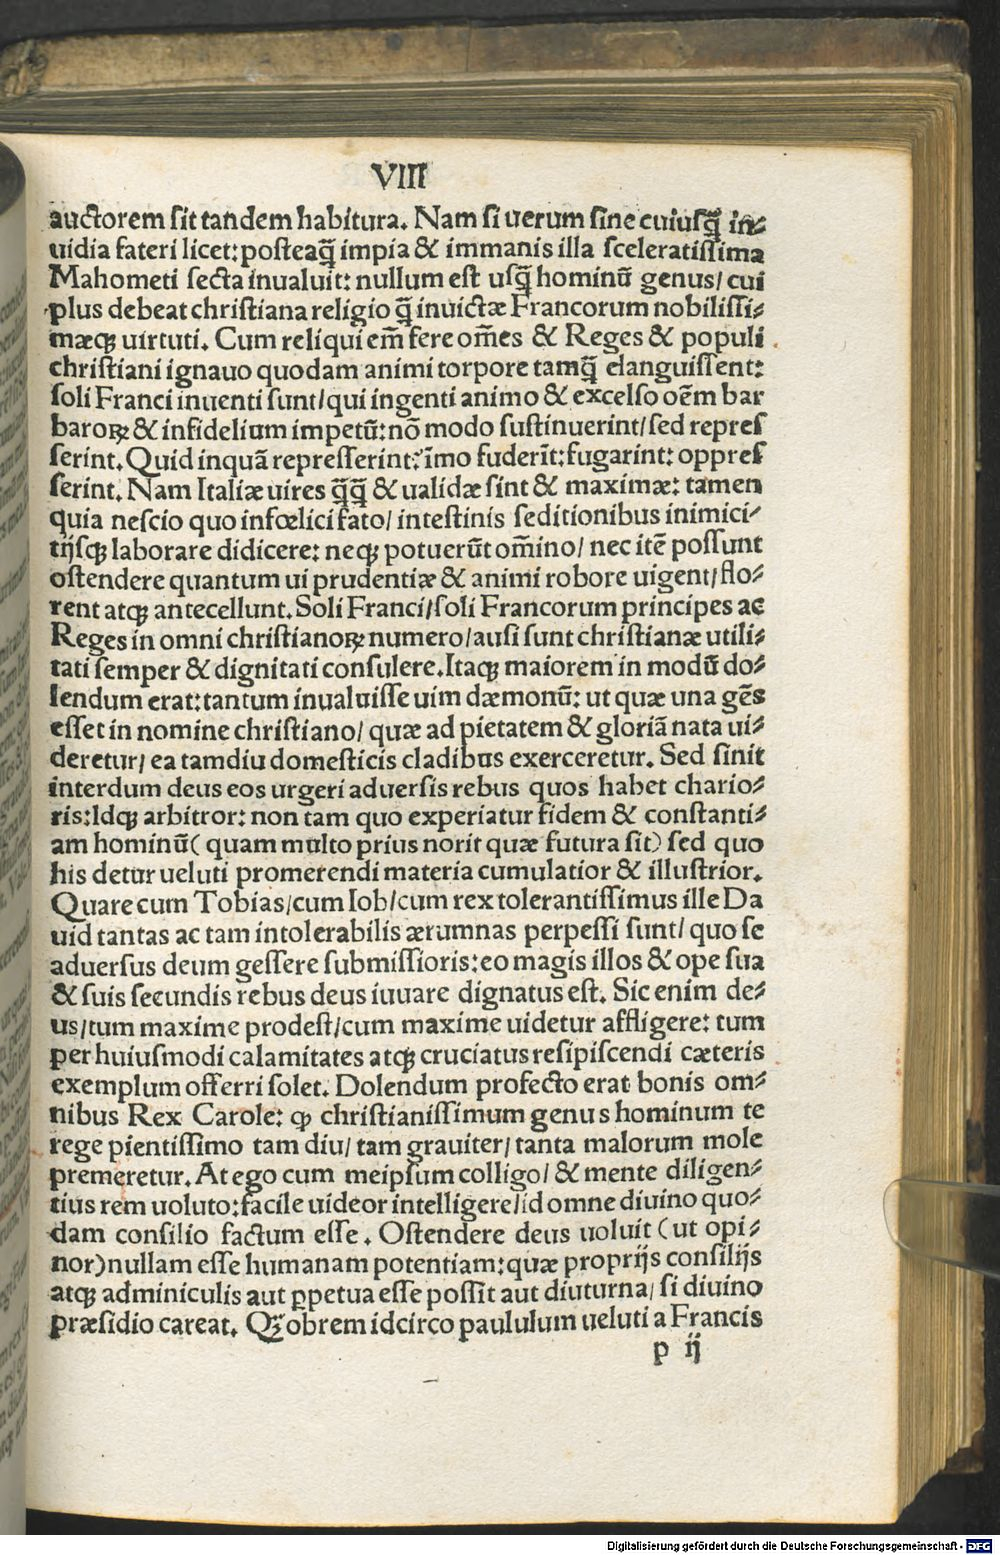 VIII
auctorem sit tandem habitura. Nam si uerum sine cuiusq̃ in⸗
uidia fateri licet: posteaq̃ impia & immanis illa sceleratissima
Mahometi secta inualuit: nullum est usq̃ hominũ genus/ cui
plus debeat christiana religio q̃ inuictæ Francorum nobilissi⸗
mæqꝫ uirtuti. Cum reliqui em̃ fere om̃es & Reges & populi
christiani ignauo quodam animi torpore tamq̃ elanguissent:
soli Franci inuenti sunt/ qui ingenti animo & excelso oẽm bar
baroꝝ & infidelium impetũ: nõ modo sustinuerint/ sed repres
serint. Quid inquã represserint: ĩmo fuderĩt: fugarint: oppres
serint. Nam Italiæ uires q̃q̃ & ualidæ sint & maximæ: tamen
quia nescio quo infœlici fato/ intestinis seditionibus inimici⸗
tijsqꝫ laborare didicere: neqꝫ potuerũt om̃ino/ nec itẽ possunt
ostendere quantum ui prudentiæ & animi robore uigent/ flo⸗
rent atqꝫ antecellunt. Soli Franci/ soli Francorum principes ac
Reges in omni christianoꝝ numero/ ausi sunt christianæ utili⸗
tati semper & dignitati consulere. Itaqꝫ maiorem in modũ do⸗
lendum erat: tantum inualuisse uim dæmonũ: ut quæ una gẽs
esset in nomine christiano/ quæ ad pietatem & gloriã nata ui⸗
deretur/ ea tamdiu domesticis cladibus exerceretur. Sed sinit
interdum deus eos urgeri aduersis rebus quos habet chario⸗
ris: Idqꝫ arbitror: non tam quo experiatur fidem & constanti⸗
am hominũ( quam multo prius norit quæ futura sit) sed quo
his detur ueluti promerendi materia cumulatior & illustrior.
Quare cum Tobias/ cum Iob/ cum rex tolerantissimus ille Da
uid tantas ac tam intolerabilis ærumnas perpessi sunt/ quo se
aduersus deum gessere submissioris: eo magis illos & ope sua
& suis secundis rebus deus iuuare dignatus est. Sic enim de⸗
us/ tum maxime prodest/ cum maxime uidetur affligere: tum
per huiusmodi calamitates atqꝫ cruciatus resipiscendi cæteris
exemplum offerri solet. Dolendum profecto erat bonis om⸗
nibus Rex Carole: ꝙ christianissimum genus hominum te
rege pientissimo tam diu/ tam grauiter/ tanta malorum mole
premeretur. At ego cum meipsum colligo/ & mente diligen⸗
tius rem uoluto: facile uideor intelligere/ id omne diuino quo⸗
dam consilio factum esse. Ostendere deus uoluit ( ut opi⸗
nor) nullam esse humanam potentiam: quæ proprijs consilijs
atqꝫ adminiculis aut ꝑpetua esse possit aut diuturna/ si diuino
præsidio careat. Qꝫobrem idcirco paululum ueluti a Francis
p ij
Digitalisierung gefördert durch die Deutsche Forschungsgemeinschaft - DFG